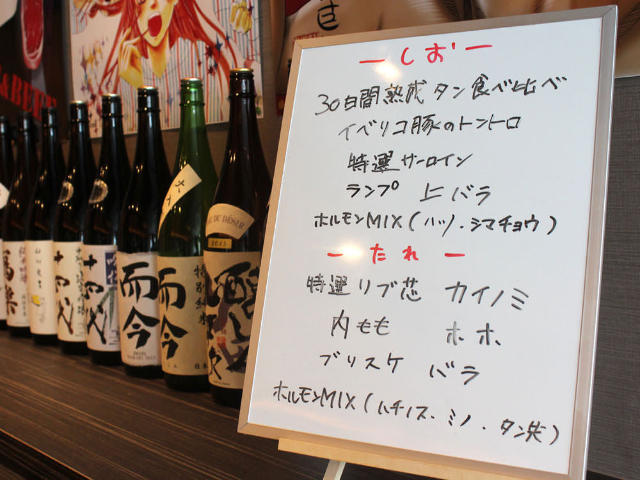 ーしおー
30日間熟成 タン食べ比べ
イベリコ豚のトントロ
特選 サーロイン
ランプ 上バラ
ホルモンMIX(ハツ・シマチョウ)
ーたれー
特選リブ芯 カイノミ
内もも ホホ
ブリスケ バラ
ホルモンMIX(ハチノス・ミノ・タン先)
十四代
十四代
而今
而今
特別純米